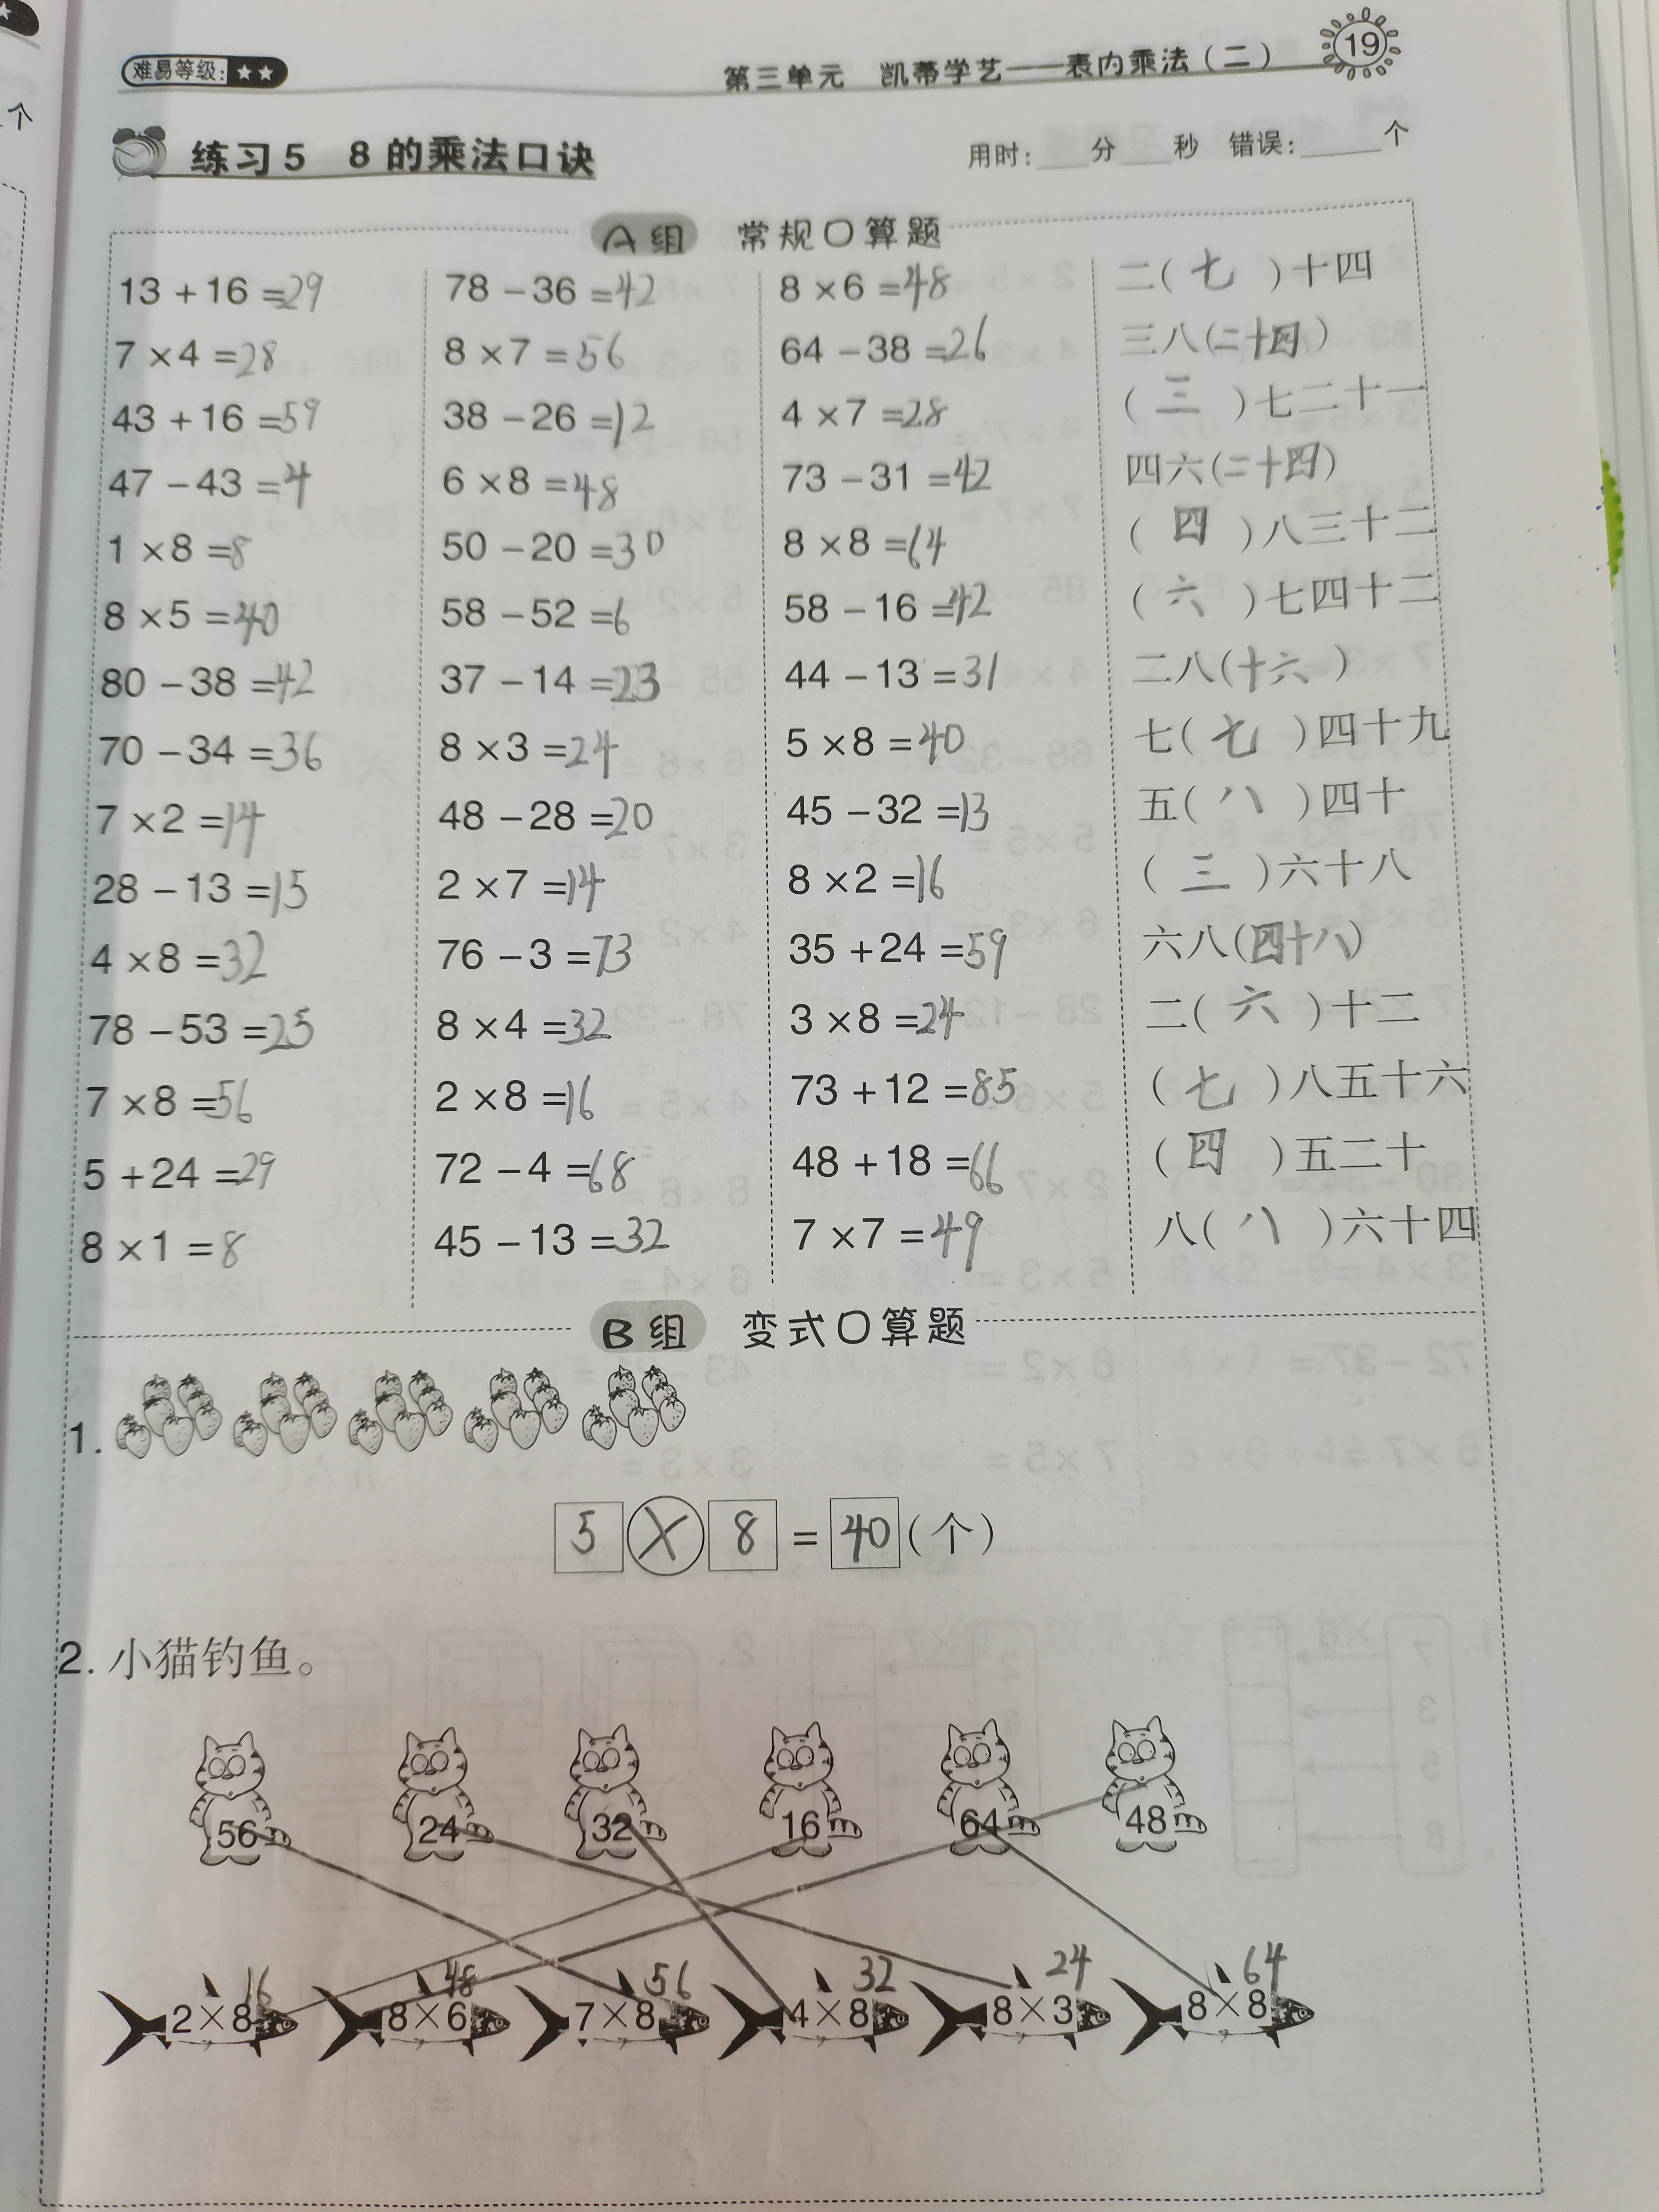 难易等级:★★
第三单元 凯蒂学艺——表内乘法(二)
19
个
练习5 8的乘法口诀
用时:____分____秒 错误:____个
A组 常规口算题
13+16=29
7×4=28
43+16=59
47-43=4
1×8=8
8×5=40
80-38=42
70-34=36
7×2=14
28-13=15
4×8=32
78-53=25
7×8=56
5+24=29
8×1=8
78-36=42
8×7=56
38-26=12
6×8=48
50-20=30
58-52=6
37-14=23
8×3=24
48-28=20
2×7=14
76-3=73
8×4=32
2×8=16
72-4=68
45-13=32
8×6=48
64-38=26
4×7=28
73-31=42
8×8=64
58-16=42
44-13=31
5×8=40
45-32=13
8×2=16
35+24=59
3×8=24
73+12=85
48+18=66
7×7=49
二(七)十四
三八(二十四)
(三)七二十一
四六(二十四)
(四)八三十二
(六)七四十二
二八(十六)
七(七)四十九
五(八)四十
(三)六十八
六八(四十八)
二(六)十二
(七)八五十六
(四)五二十
八(八)六十四
B组 变式口算题
1.
5×8=40(个)
2.小猫钓鱼。
56 24 32 16 64 48
16 48 56 32 24 64
2×8 8×6 7×8 4×8 8×3 8×8